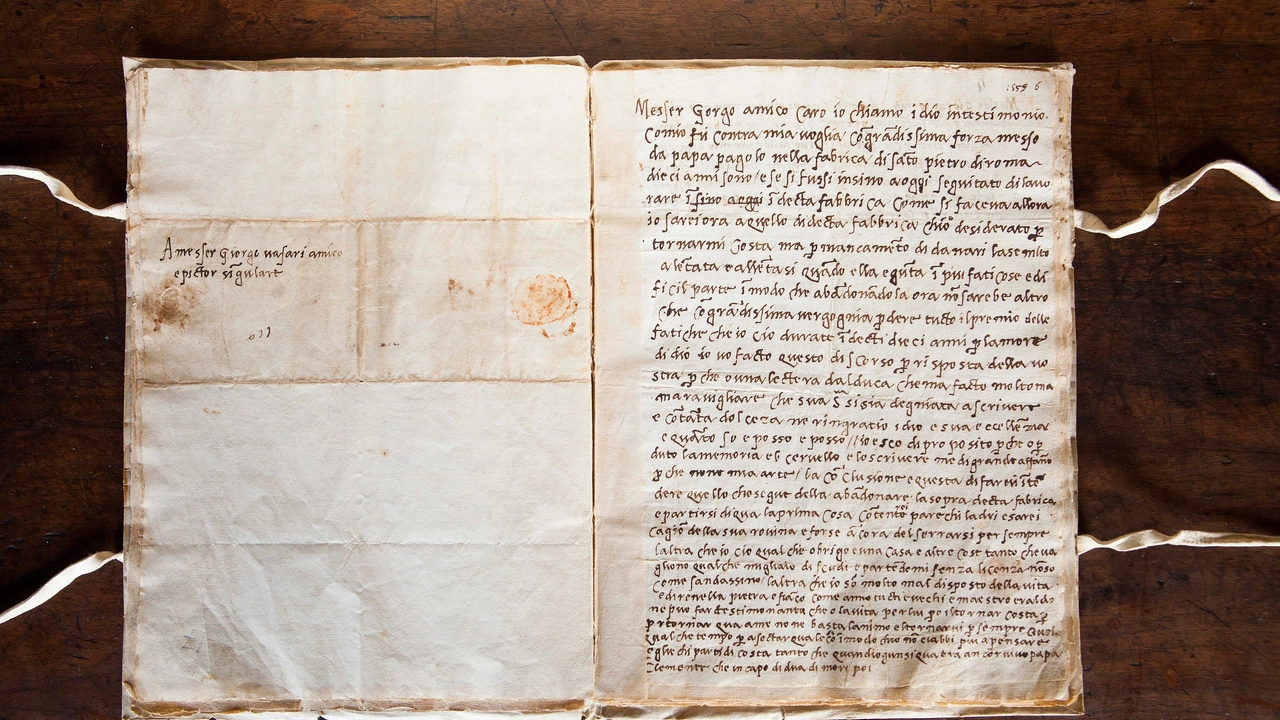 A messer Giorgo vasari amico
e pictor sīgulare
1556
Messer Gorgo amico caro io chiamo idio intestimonio
Comio fu contra mia voglia cō grādissima forza messo
da papa pagolo nella fabrica di sāto pietro di roma
dieci anni sono e se si fussi insino aoggi seguitato di lavo
rare ī sino aoggi ī decta fabbrica come si faceva allora
io sarei ora a quello didecta fabbrica chio desiderato p̄
tornarmi costa ma p̄ mancamēto di danari lase molto
alētata e allētasi quādo ella e gūta ī piu faticose e di
ficil parte ī modo che abādonādola ora nō sarebe altro
che cō grādissima vergognia p̄dere tucto il premio delle
fatiche che io cio durate ī decti dieci anni p̄ lamore
di dio io vo facto questo discorso p̄ risposta della vo
stra p̄ che o una lectera dal duca che ma facto molto ma
maravigliare che sua S si sia degniata a scrivere
e cō tāta dolceza ne ringratio idio e sua eccellēzia
e quāto so e posso e posso / io esco di proposito p̄che o p̄
duto la memoria el cervello e lo scrivere me di grande affāno
p̄ che mia arte / la cōclusione e questa di farvi īte
dere quello che segue della abādonare la sopra decta fabrica
e partirsi di qua la prima cosa cōtenterei parechi ladri e sarei
cagiō della sua rovina e forse ācora del serrarsi per sempre
laltra che io cio qualche obrigo e una casa e altre cose tanto che va
gliono qualche migliaio di scudi e partēdomi senza licenza nō so
come sandassino / laltra che io sō molto mal disposto della vita
e di renella pietra e fiāco come anno tucti e vechi e maestro eraldo
ne puo far testimonanza che o la vita per lui p̄ o il tornar costa p̄
p̄ ritornar qua a me no ne basta lanimo e tornarvi p̄ sempre
qualche tempo p̄ asectar qua le cō ī modo chio nō ci abbi piu a pensare
egli e chi parti di costa tanto che quandio giunsi qua era ancor vivo papa
Clemente che in capo di dua di mori poi